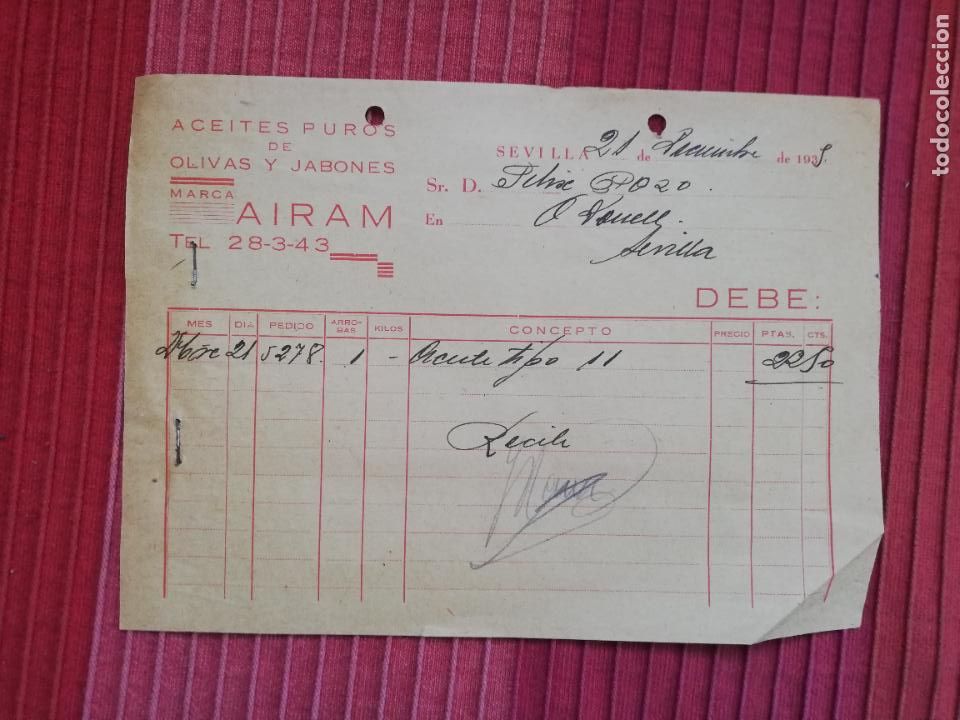 ACEITES PUROS
DE
OLIVAS Y JABONES
MARCA
AIRAM
TEL 28-3-43
SEVILLA 21 de Diciembre de 1935.
Sr. D. Felix Pozo.
En O Donell.
Sevilla
DEBE:
MES DIA PEDIDO ARRO-BAS KILOS CONCEPTO PRECIO PTAS. CTS.
Dbre 21 5278 1 - Aceite tipo 11 22 50
Recibi
todocoleccion